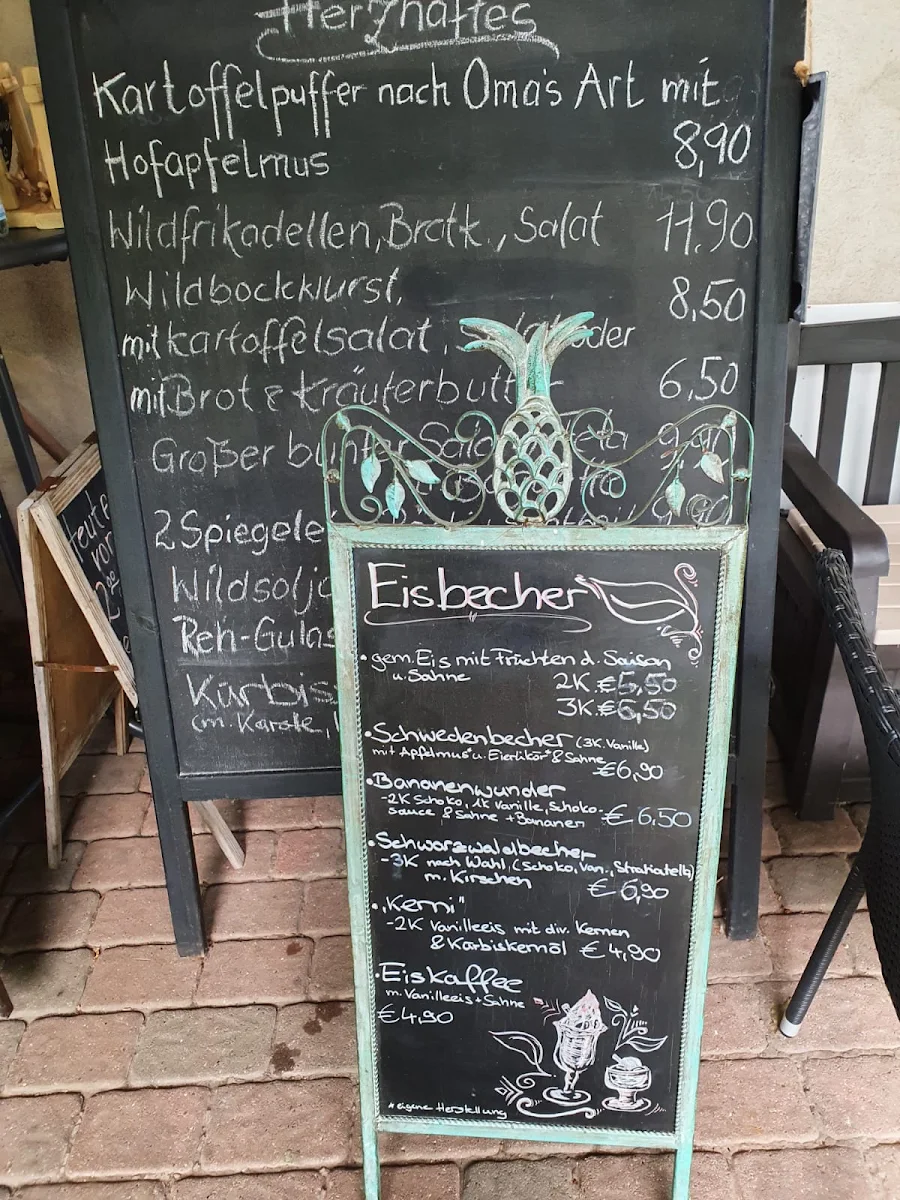 Herzhaftes
Kartoffelpuffer nach Oma's Art mit
Hofapfelmus 8,90
Wildfrikadellen, Bratk., Salat 11.90
Wildbockwurst, 8,50
mit Kartoffelsalat, Salat oder
mit Brot & Kräuterbutter 6,50
Großer bunter
2 Spiegele
Wildsolj
Reh-Gulas
Kürbis
(m. Karotte,
Heute
vor
Eisbecher
• gem. Eis mit Früchten d. Saison
u. Sahne 2K €5,50
3K €6,50
• Schwedenbecher (3K. Vanille)
mit Apfelmus* u. Eierlikör* & Sahne
€6,90
• Bananenwunder
-2K Schoko, 1K Vanille, Schoko-
sauce & Sahne + Bananen € 6.50
• Schwarzwaldbecher
-3K nach Wahl, (Schoko, Van., Stratiatella)
m. Kirschen € 6,90
• "Kerni"
-2K Vanilleeis mit div. Kernen
& Kürbiskernöl € 4,90
• Eiskaffee
m. Vanilleeis + Sahne
€4,90
* eigene Herstellung